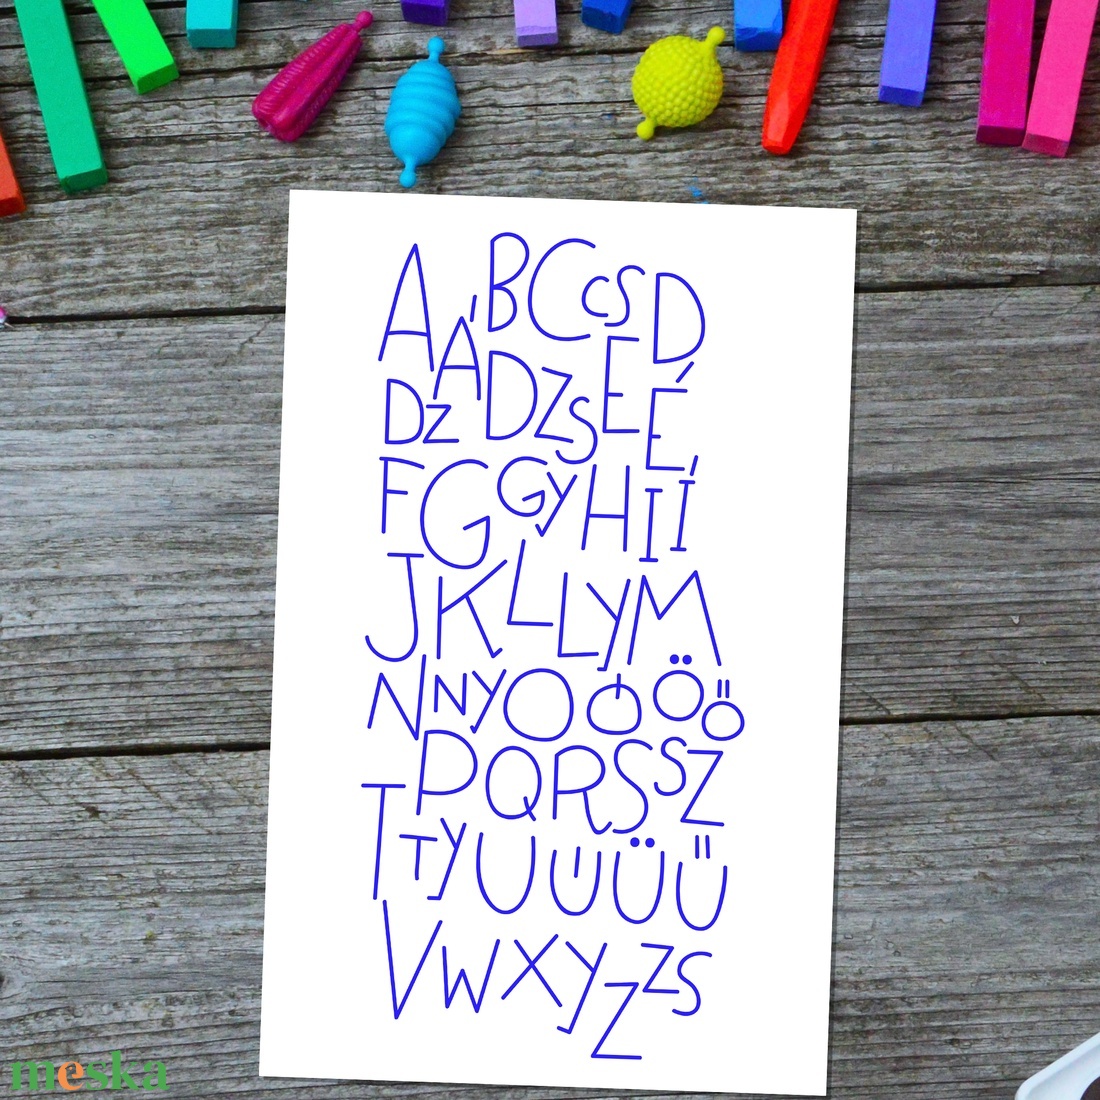 A Á B C Cs D
Dz Dzs E É
F G Gy H I Í
J K L Ly M
N Ny O Ó Ö Ő
P Q R S Sz
T Ty U Ú Ü Ű
V W X Y Z Zs
meska